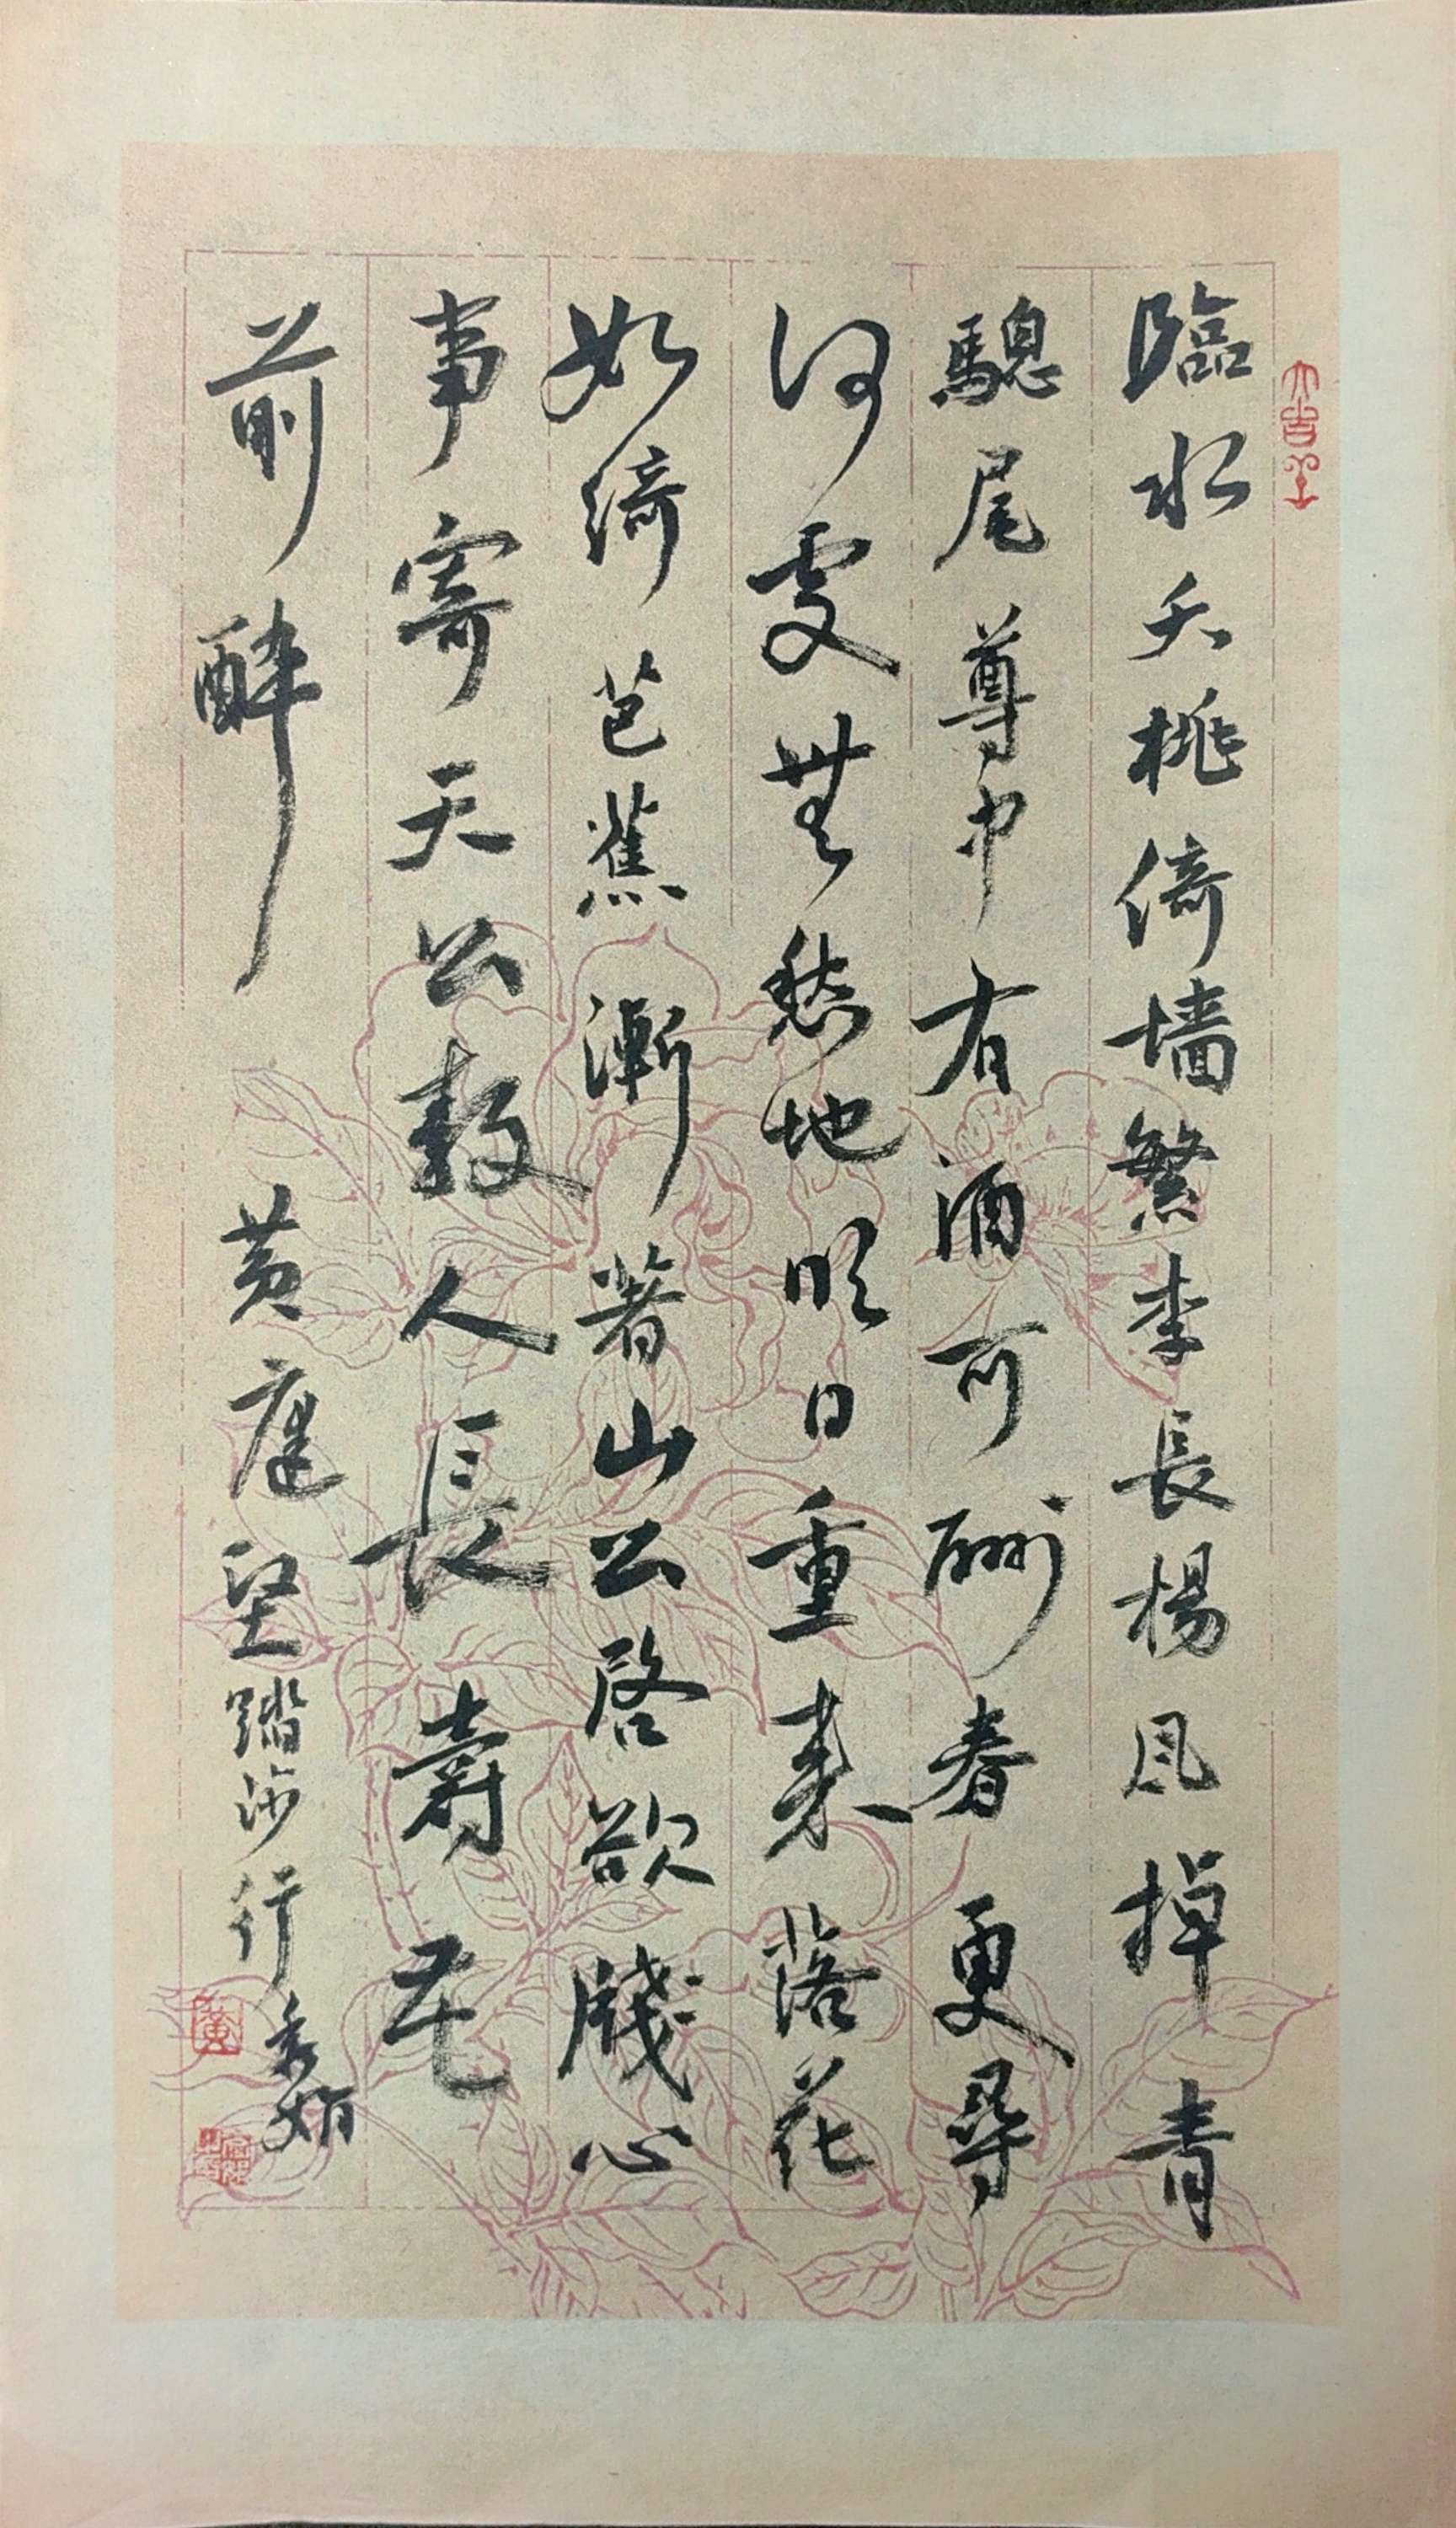 大吉羊
臨水夭桃倚墻繁李長楊風掉青
驄尾尊中有酒可酬春更尋
何處無愁地明日重來落花
如綺芭蕉漸著山公啓欲牋心
事寄天公教人長壽花
前醉 黃庭堅踏沙行 秀娟
黃